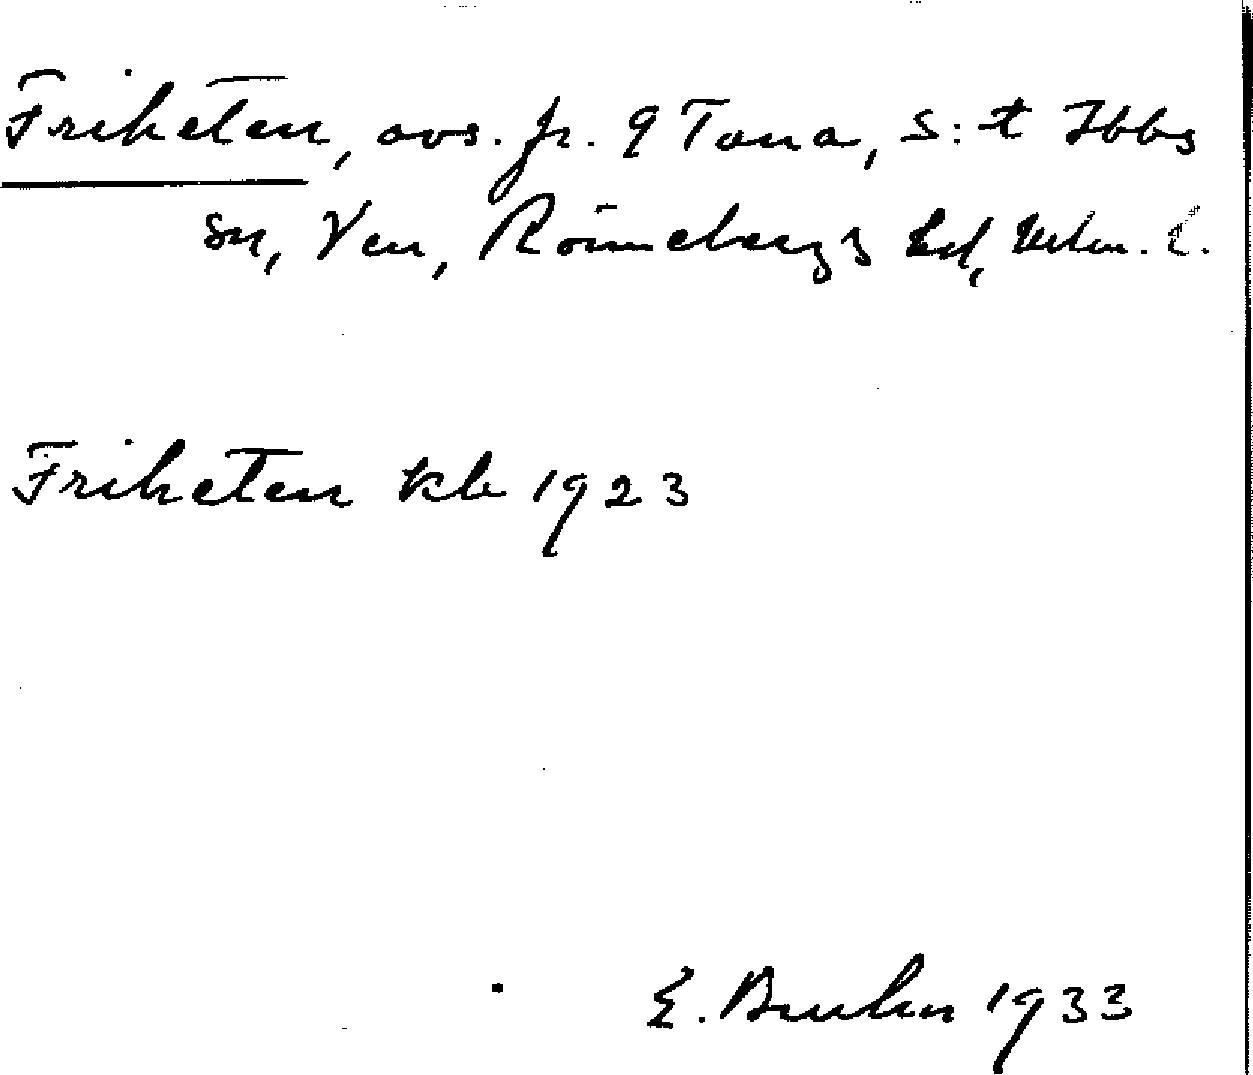 Friheten, avs. fr. 9 Tuna, S:t Ibbs
sn, Ven, Rönnebergs hd, Mlm. l.
Friheten kb 1923
E. Bruhn 1933